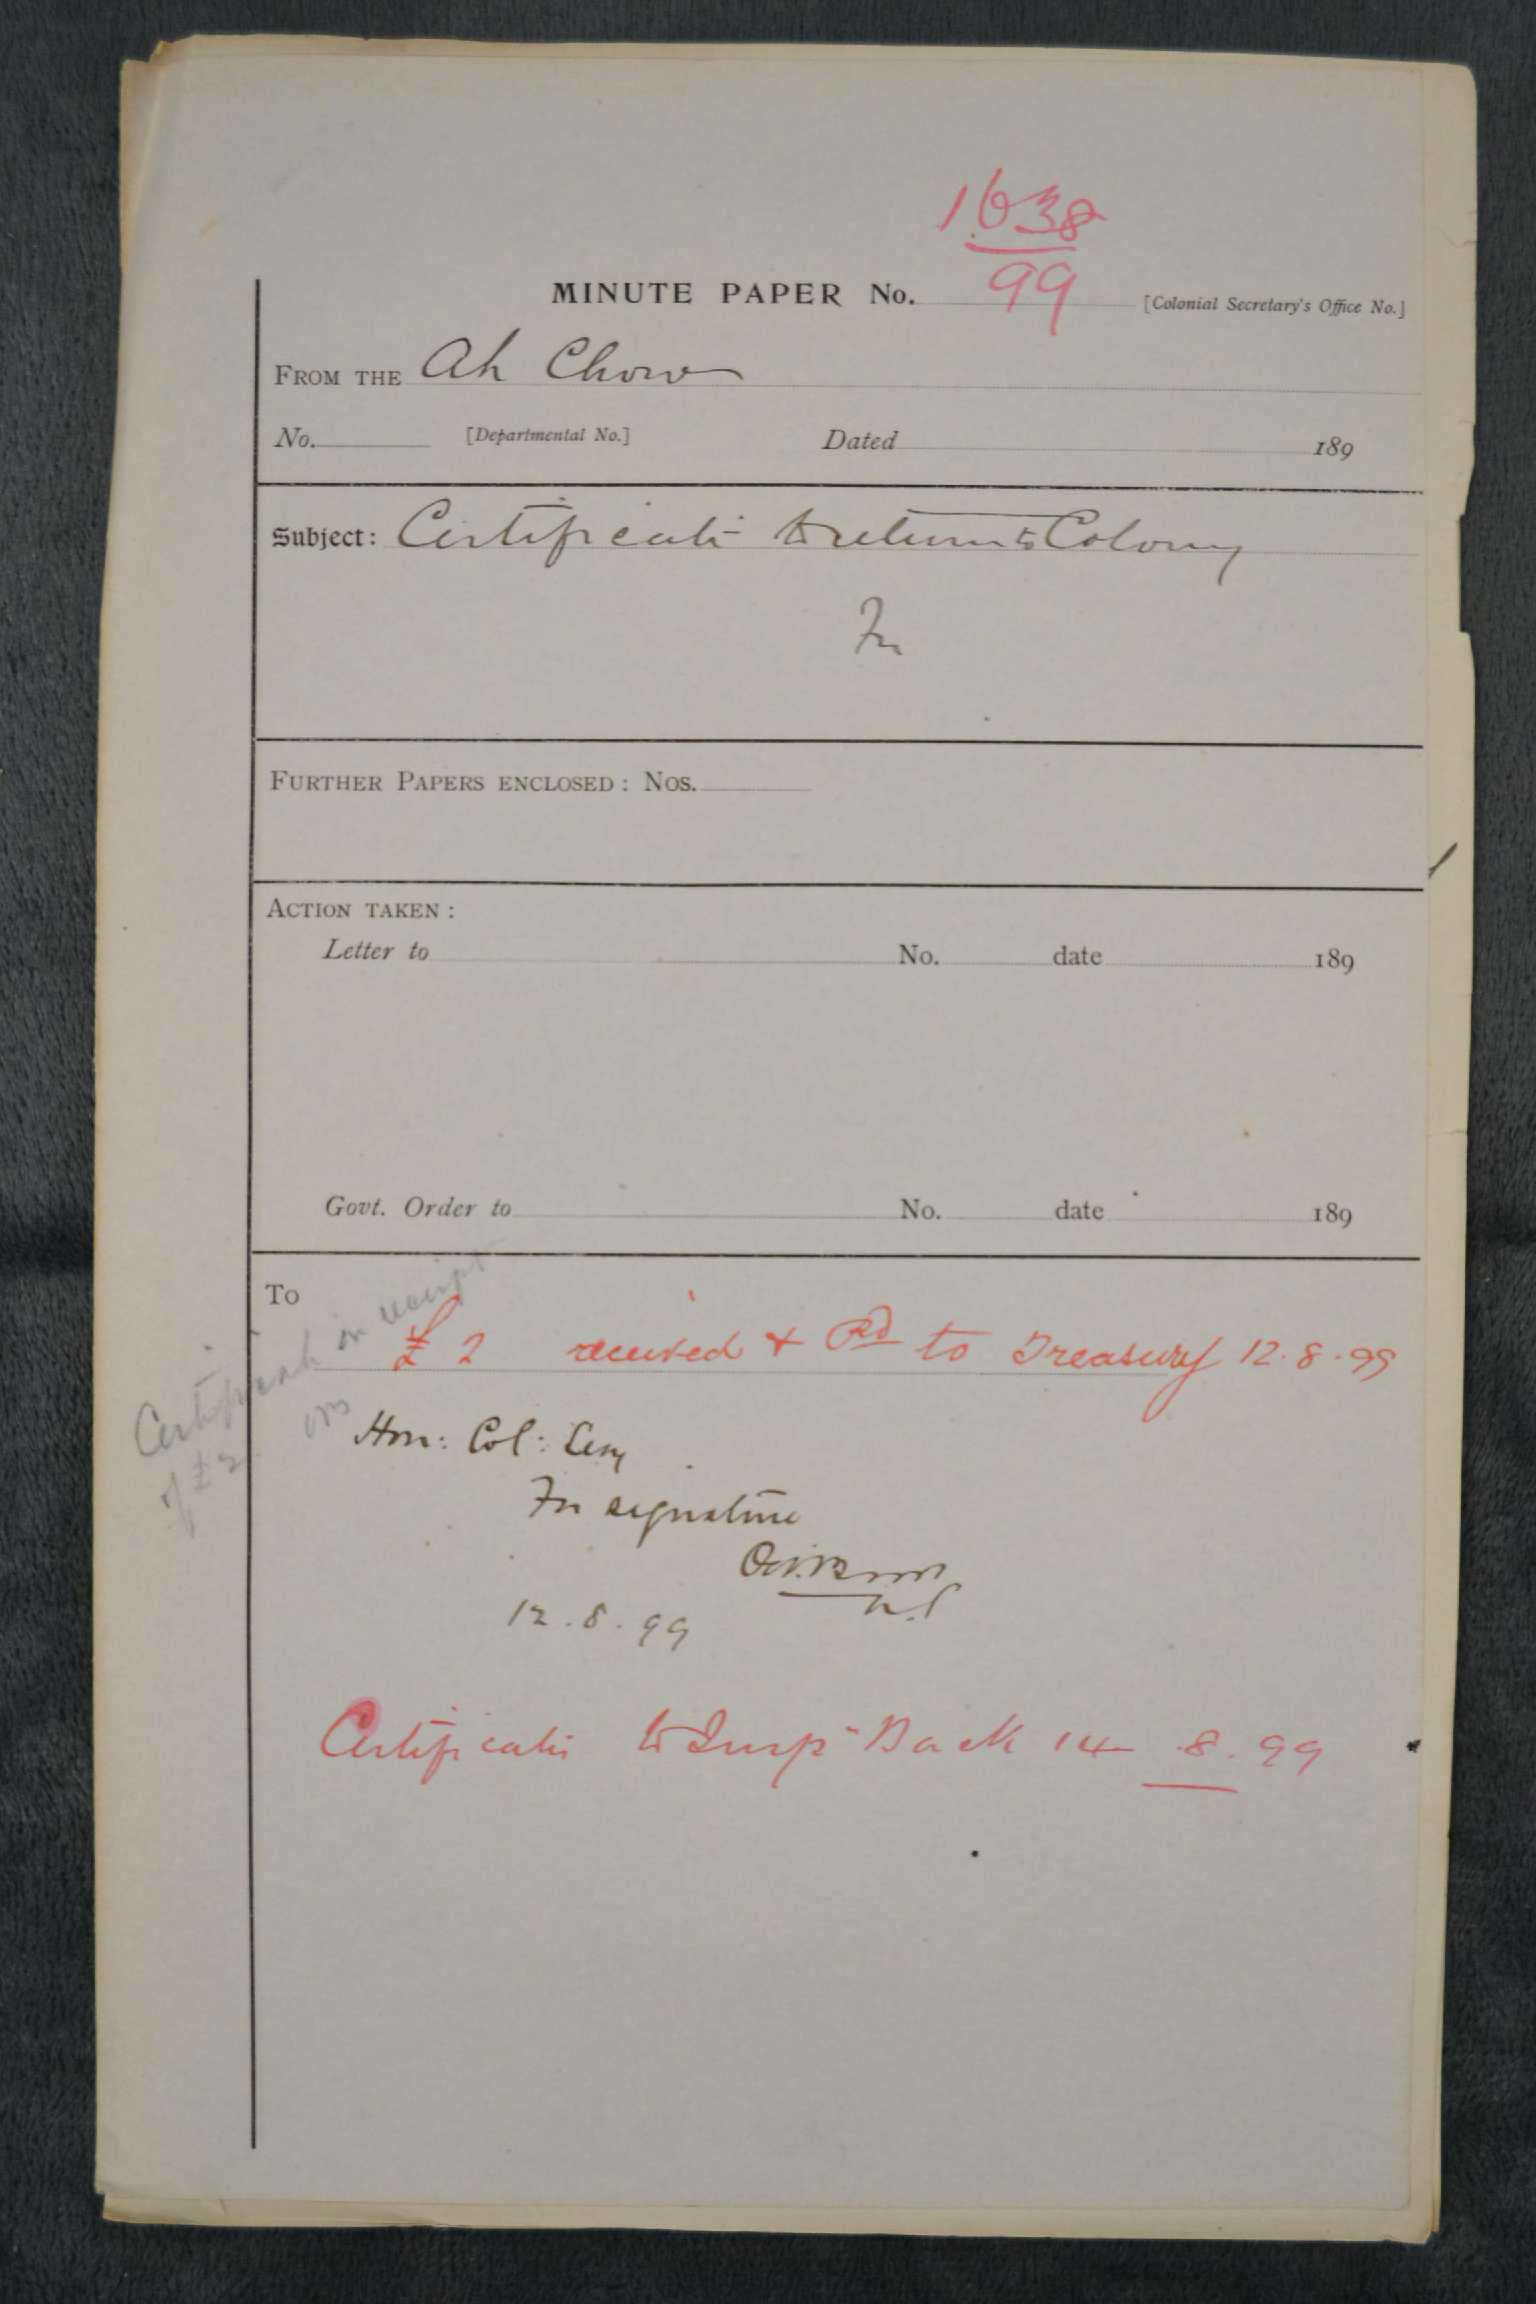 1638
99
MINUTE PAPER No. [Colonial Secretary's Office No.]
FROM THE Ah Chow
No. [Departmental No.] Dated 189
Subject: Certificate to return to Colony
For
FURTHER PAPERS ENCLOSED: Nos.
ACTION TAKEN:
Letter to No. date 189
Govt. Order to No. date 189
To
Certificate on receipt
of £2.
£2 received & Pd to Treasury 12.8.99
Hon: Col: Secy
For signature
12.8.99
Certificate to Insp Back 14.8.99